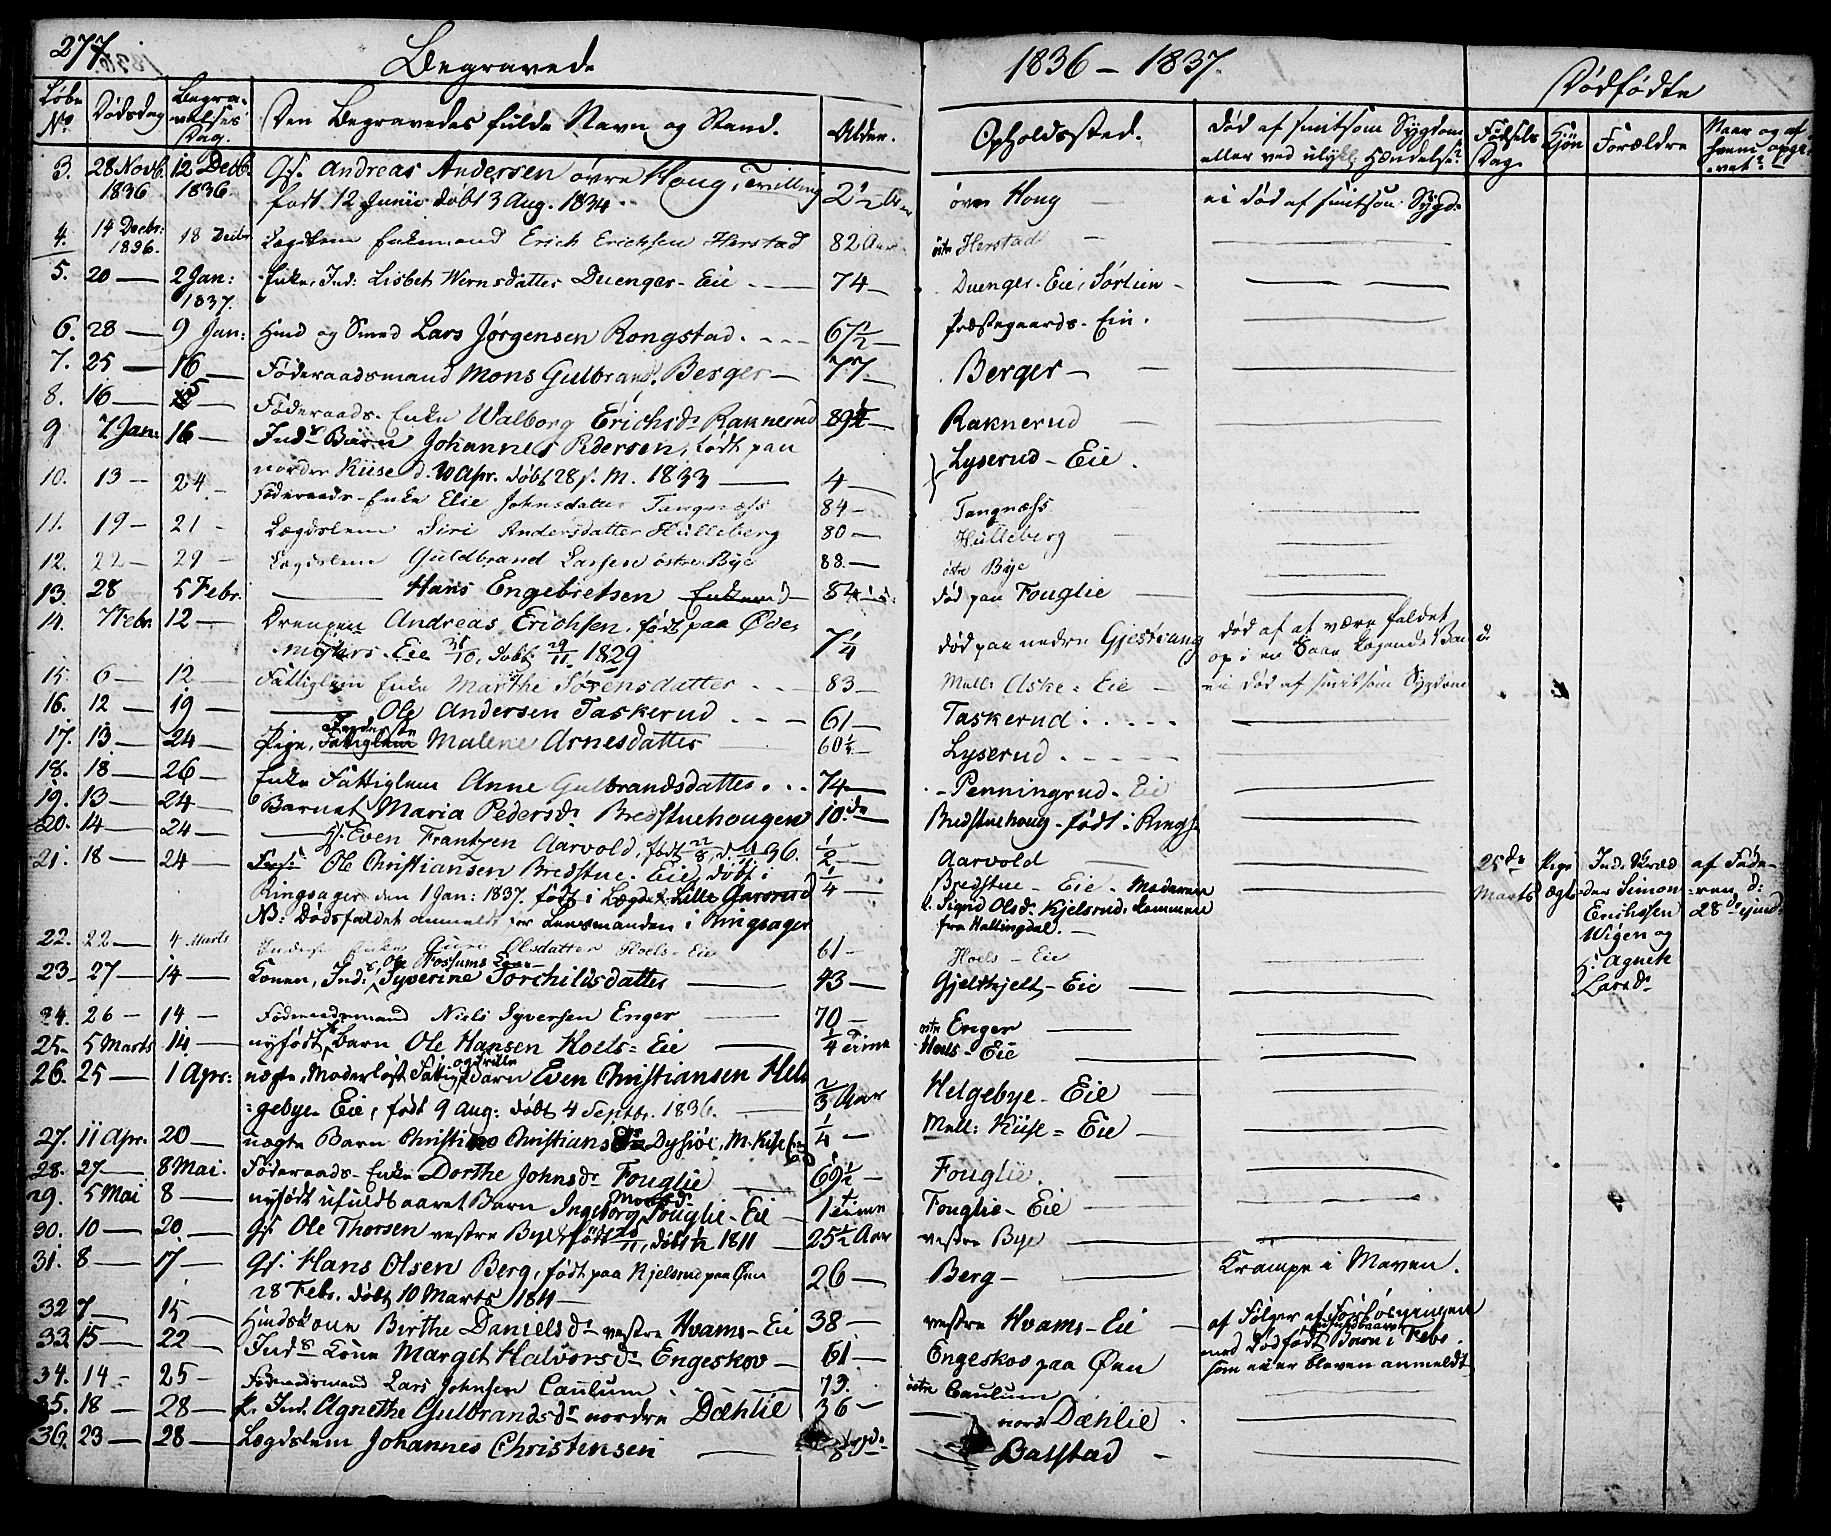 277
Begravede
1836 – 1837.
Dødfødte
Løbe No
Dødsdag
Begravelses Dag.
Den Begravedes fulde Navn og Stand.
Alder.
Opholdssted.
Død af smitsom Sygdom
eller ved ulykl. Hændelse?
Fødsels Dag
Kjøn
Forældre
Naar og af hvem opgivet?
3. 28 Novb. 1836 12 Decb. 1836 Gs. Andreas Andersen øvre Houg, Tvilling
født 12 Junii døbt 3 Aug. 1834. øvre Houg ei død af smitsom Sygd.
4. 14 Decbr: 1836. 18 Decbr Lægdslem Enkemand Erich Erichsen Herstad 82 Aar østre Herstad
5. 20 — 2 Jan: 1837. Enke, Ind: Lisbet Wernsdatter Duenger-Eie 74 — Duenger-Eie, Sørlien
6. 28 — 9 Jan: Huusmd og Smed Lars Jørgensen Rongstad. 67½ Præstegaards-Eie.
7. 25 — 16 — Føderaadsmand Mons Gulbrands. Berger — 77 — Berger —
8. 16 — 15 — Føderaads-Enke Walborg Erichsdr Raknerud 89½ — Raknerud
9 7 Jan: 16 — Indrs Barn Johannes Pedersen, født paa
nordre Kiise d. 10 Apr. døbt 28 s. M. 1833 — 4 — Lyserud-Eie.
10. 13 — 24 — Føderaads-Enke Elie Johnsdatter Tangnæss 84 — Tangnæss
11. 19 — 21 — Lægdslem Siri Andersdatter Hulleberg 80 — Hulleberg
12. 22 — 29 — Lægdslem Guldbrand Larsen østre Bye 88. — østre Bye
13. 28 5 Febr. — Hans Engebretsen 84 død paa Fouglie
14. 7 Febr. 12 — Drengen Andreas Erichsen, født paa Øver
Eie 31/10, døbt 29/11 1829 7¼ død paa nedre Gjestvang død af at være faldet
op i en Saae kogende Vand
15. 6 — 12 — Fattiglem Enke Marthe Sørensdatter 83 — Mell: Aske-Eie ei død af smitsom Sygdom
16. 12 — 19 — — Ole Andersen Taskerud 61 — Taskerud
17. 13 — 24 — Pige, Fattiglem Malene Arnesdatter 60½ — Lyserud
18. 18 — 26 — Enke Fattiglem Anne Gulbrandsdatter 74 — Penningrud-Eie
19. 13 — 24 — Barnet Maria Pedersdr Bredstuehougen 10 do Bredstuehoug-født i Rings.
20. 14 — 24 — Gs. Even Frantzen Aarvold, født 22/8, 36. ½ Aarvold
21. 18 — 24 — Ole Christiansen Bredstue-Eie, døbt i
Ringsager den 1 Jan: 1837. født i Lægdet Lille ¼ — Bredstue-Eie. Moderen
NB: Dødsfaldet anmeldt for Lensmanden i Ringsager
Sigrid Olsdr Kjelsrud, kommen
fra Hallingdal.
25de Marts Pige ægte Ind. Skræder Simon
Erichsen
Wigen og
Agnete
Larsdr
af Faderen d: 28de ejusd.
22. 22 — 4 Marts Enke Guri Olsdatter Hoels-Eie 61 — Hoels-Eie
23. 27 — 14 — Konen, Ind: Ole Fossums Kone Syverine Torchildsdatter 43 — Gjelthjelt-Eie
24. 26 — 14 — Føderaadsmand Niels Syversen Enger 70 — østre Enger
25. 5 Marts 14 — nyfødt Barn Ole Hansen Hoels-Eie ¼ Time Hoels-Eie
26. 25 — 1 Apr: uægte, Moderløst Fattigt og Barn Even Christiansen Hel-
gebye-Eie, født 9 Aug: døbt 4 Septbr. 1836. ⅔ Aar Helgebye-Eie
27. 11 Apr. 20 — uægte Barn ¼ — Mell: Kiise-Eie
28. 27 — 8 Mai. Føderaads-Enke Dorthe Johnsdr Fouglie 69½ — Fouglie
29. 5 Mai 8 — nyfødt ufuldbaaret Barn Ingeborg Monsdr Fouglie-Eie 1 time Fouglie-Eie
30. 10 — 20 — Gs. Ole Thorsen vestre Bye, født 20/11, døbt 1/12 1811 25½ Aar vestre Bye
31. 8 — 17 — Gs: Hans Olsen Berg, født paa Kjelsrud paa Øen
28 Febr. døbt 10 Marts 1811 — 26 — Berg — Krampe i Maven.
32 7 — 15 — Huuskone Birthe Danielsdr vestre Hvams-Eie 38 — vestre Hvams-Eie af Følger af Forløsningen
33 15 — 22 — Indrs Kone Margit Halvorsdr Engeskov — 61 — Engeskov paa Øen med dødfødt Barn i Febr.
som ei er bleven anmeldt
34. 14 — 25 — Føderaadsmand Lars Johnsen Caulum 73. østre Caulum
35. 18 — 28 — Ind. Agnethe Gulbrandsdr nordre Dæhlie 36 — nord Dæhlie
36. 23 — 28 — Lægdslem Johannes Christensen Balstad